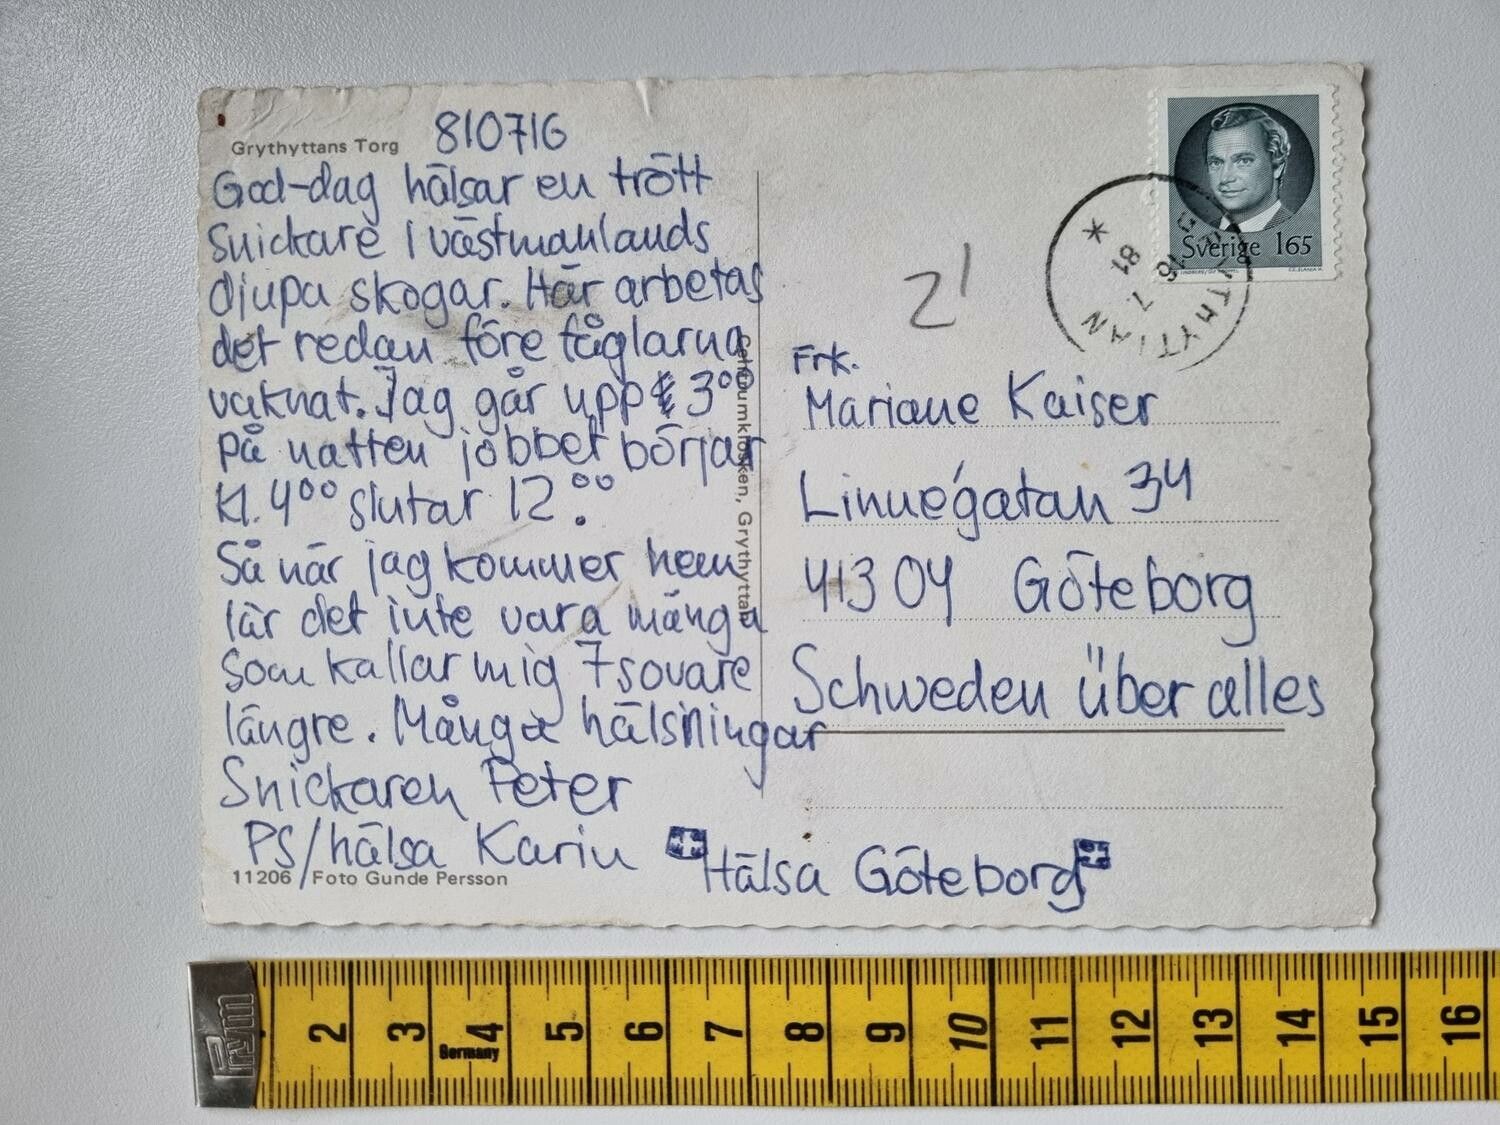 Grythyttans Torg
810716
God-dag hälsar en trött
Snickare i västmanlands
djupa skogar. Här arbetas
det redan före fåglarna
vaknat. Jag går upp 3⁰⁰
på natten jobbet börjar
Kl. 4⁰⁰ slutar 12.⁰⁰
Så när jag kommer hem
lär det inte vara många
som kallar mig 7sovare
längre. Många hälsningar
Snickaren Peter
PS/hälsa Karin
11206 Foto Gunde Persson
Grythyttan
Sverige 165
GRYTHYTTAN
16 7. 81
*
21
Frk.
Mariane Kaiser
Linnégatan 34
41304 Göteborg
Schweden über alles
Hälsa Göteborg
Prym
2 3 4 5 6 7 8 9 10 11 12 13 14 15 16
Germany